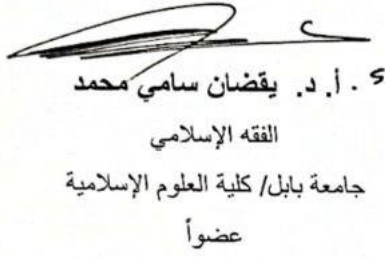 أ. د. يقضان سامي محمد
الفقه الإسلامي
جامعة بابل/ كلية العلوم الإسلامية
عضواً